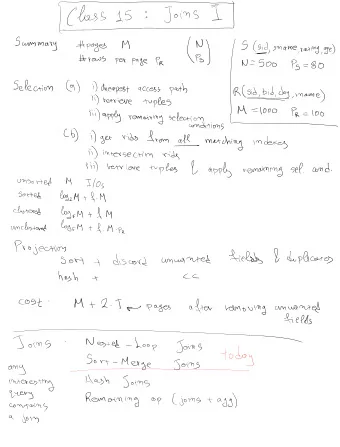 Class 15 : Joins I
Summary #pages M (N
#rows per page PR PS)
S (sid, sname, rating, age)
N=500 PS=80
R(sid, bid, day, rname)
M=1000 PR=100
Selection (a) i) cheapest access path
ii) retrieve tuples
iii) apply remaining selection
conditions
(b) i) get rids from all matching indexes
ii) intersection rids
iii) retrieve tuples & apply remaining sel cond.
unsorted M I/Os
sorted log2M + f.M
clustered logFM + f.M
unclustered logFM + f.M.PR
Projection
sort + discard unwanted fields & duplicates
hash + <<
cost: M + 2.T ← pages after removing unwanted
fields
Joins - Nested-Loop Joins
Sort-Merge Joins today
Hash Joins
Remaining op (joins + agg)
any
interesting
query
contains
a join